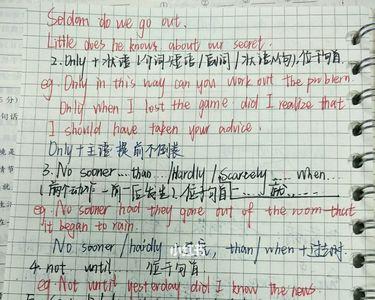 Seldom do we go out.
Little does he knows about our secret.
2. Only + 状语(个词/短语/从句),位于句首
eg. Only in this way can you work out the problem.
Only when I lost the game did I realize that
I should have taken your advice.
Only + 主语 提前不倒装
3. No sooner … than … /hardly / scarcely … when …
(两个动作一前一后发生),位于句首 一…就…
eg. No sooner had they gone out of the room than
it began to rain.
No sooner / hardly than / when + 过去时.
4. not until 位于句首
eg. Not until yesterday did I know the news
小红书
分)
句话